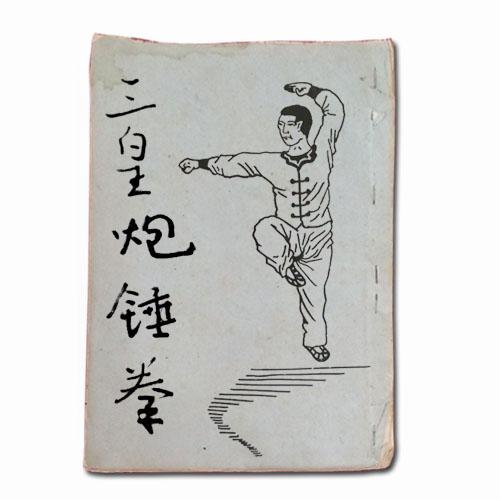 三皇炮锤拳